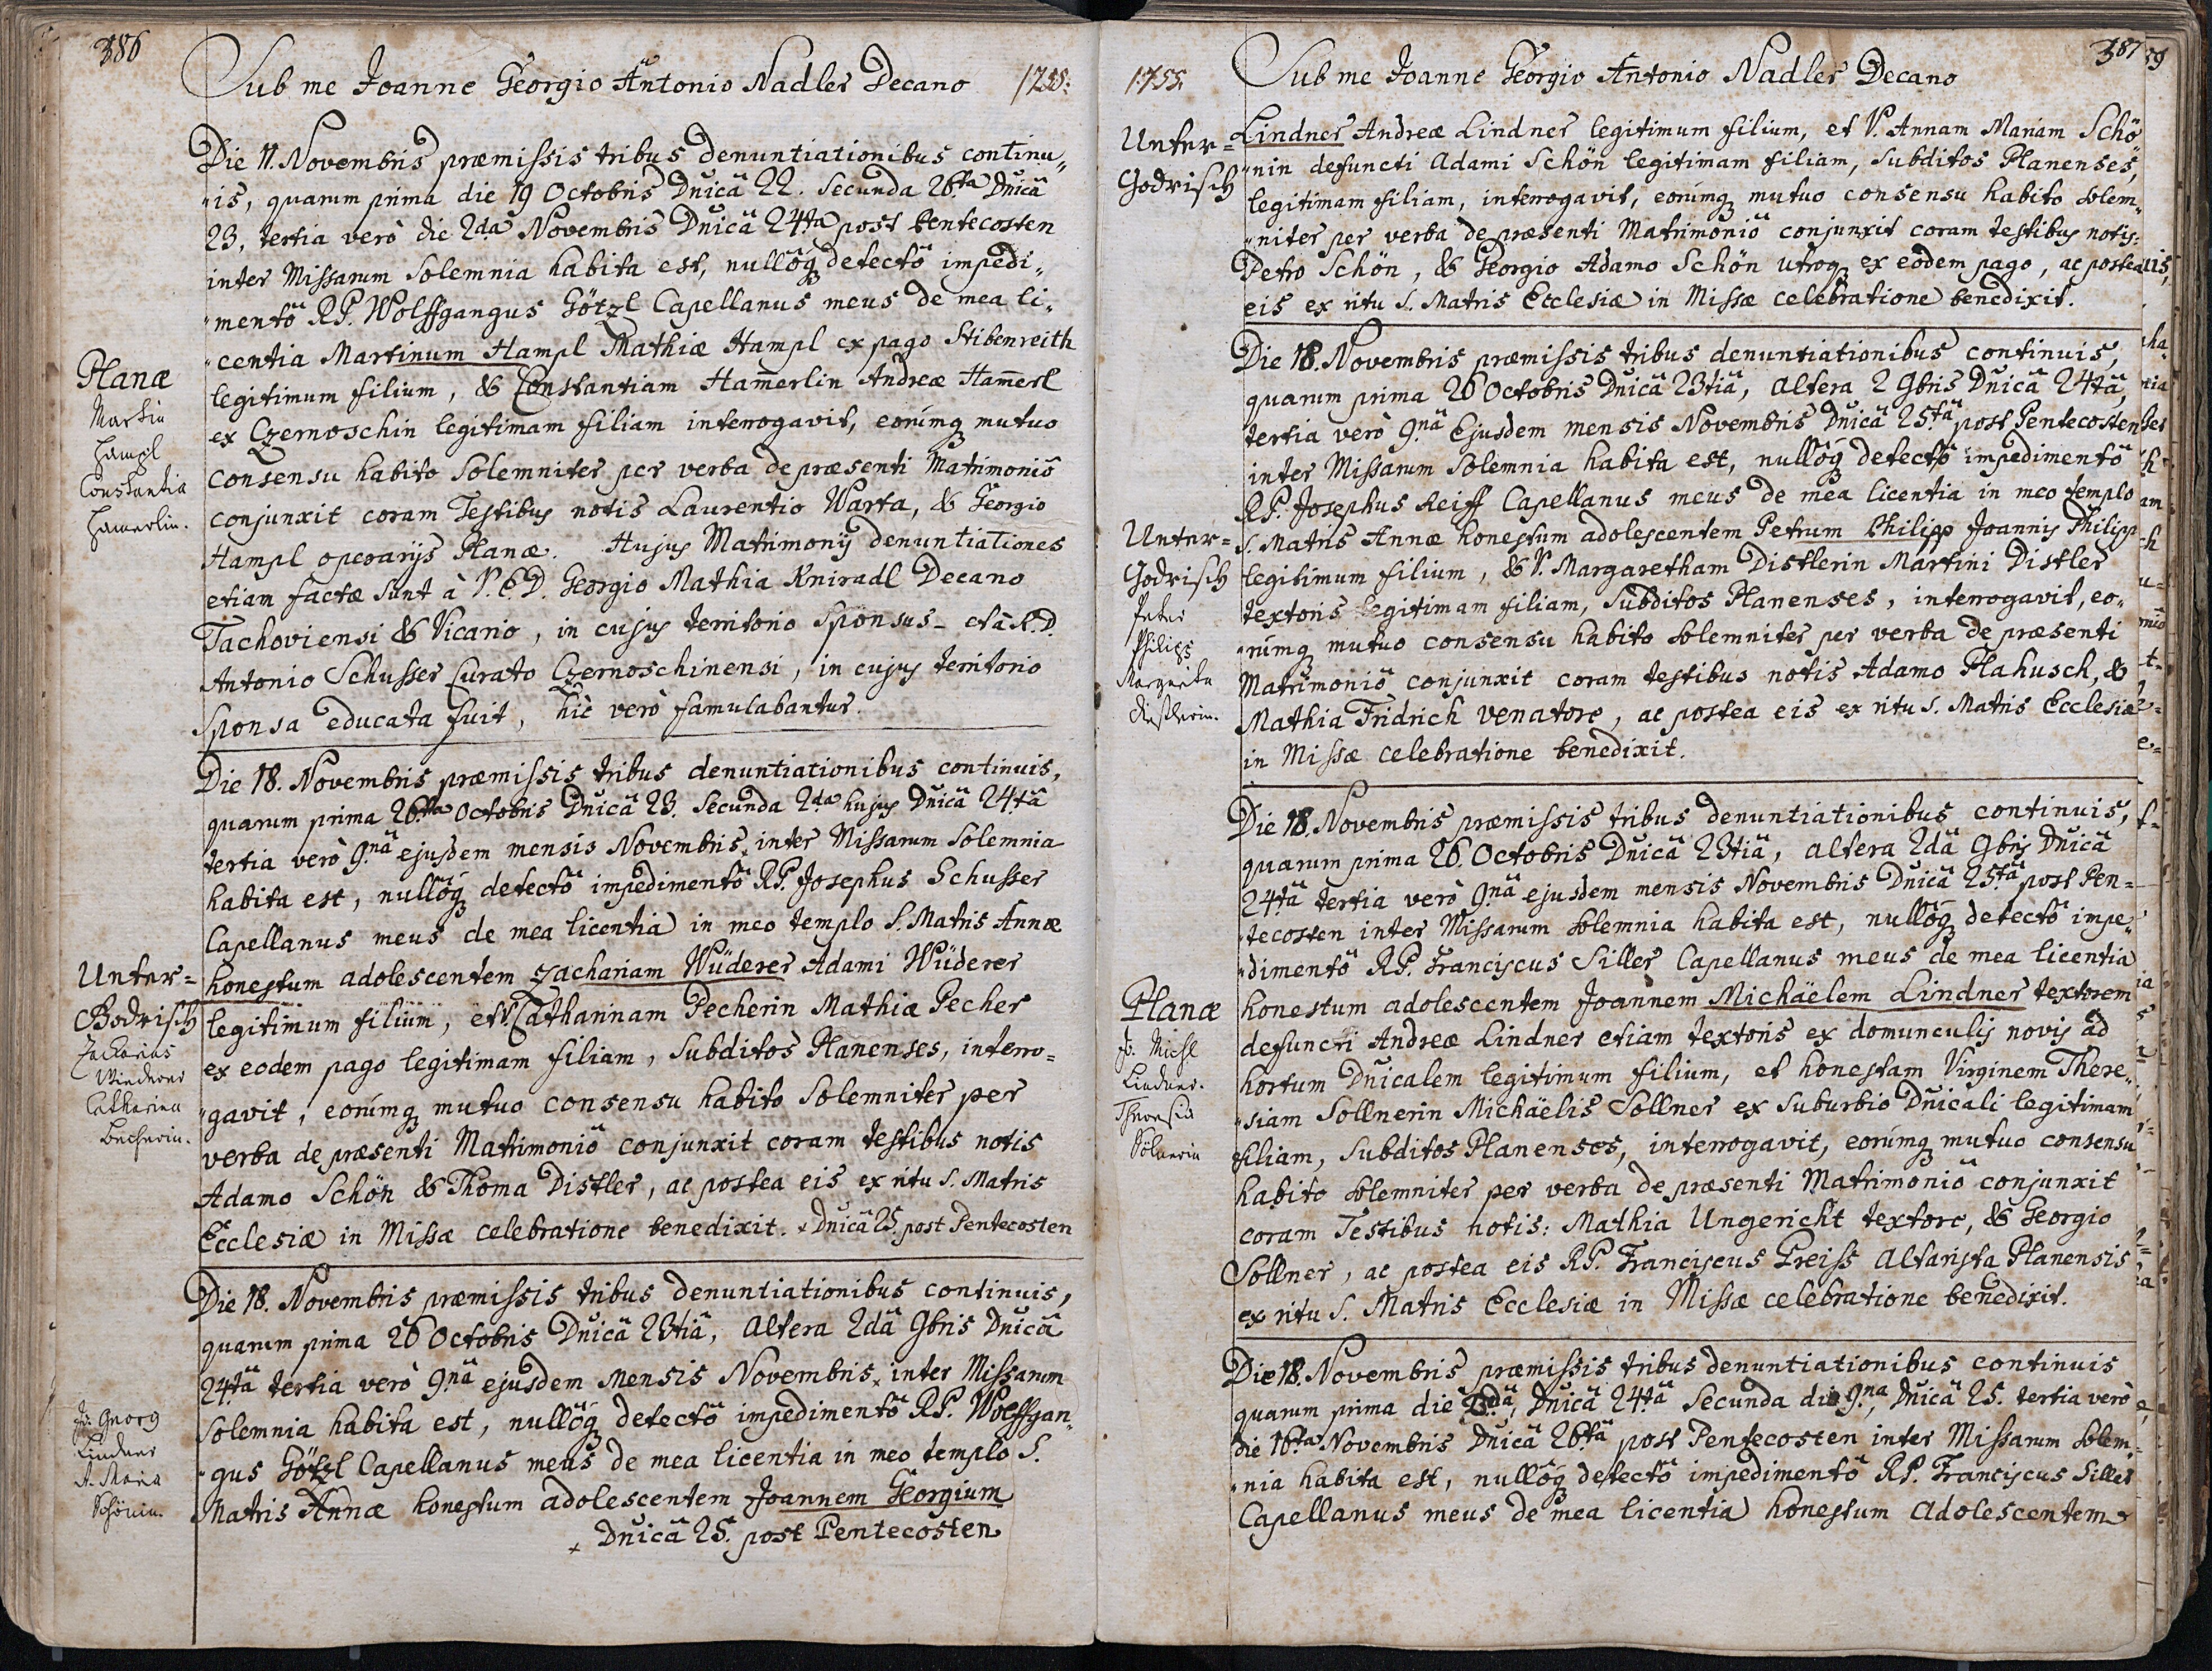 386
Sub me Joanne Georgio Antonio Nadler Decano 1755:
Die 11. Novembris præmissis tribus denuntiationibus continu„
„is, quarum prima die 19 Octobris Dnicâ 22. Secunda 26ta Dnicâ
23, tertia verò die 2da Novembris Dnicâ 24ta post Pentecosten
inter Missarum Solemnia habita est, nullôq detectô impedi„
„mentô RP. Wolffgangus Götzl Capellanus meus de mea li„
„centia Martinum Hampl Mathiæ Hampl ex pago Stibenreith
legitimum filium, & Constantiam Ham̄erlin Andreæ Ham̄erl
ex Czernoschin legitimam filiam interrogavit, eorúmq mutuo
consensu habito Solemniter per verba de præsenti Matrimoniô
conjunxit coram Testibus notis Laurentio Warta, & Georgio
Hampl operarijs Planæ. Hujus Matrimonij denuntiationes
etiam factæ sunt à P.E.D. Georgio Mathia Kniradl Decano
Tachoviensi & Vicario, in cujus territorio Sponsus - et à R.D.
Antonio Schusser Curato Czernoschinensi, in cujus territorio
Sponsa educata fuit, hìc verò famulabantur.
Planæ
Martin
Hampl
Constantia
Hamerlin.
Die 18. Novembris præmissis tribus denuntiationibus continuis,
quarum prima 26ta Octobris Dnicâ 23. Secunda 2da hujus Dnicâ 24tâ
tertia verò 9.nâ ejusdem mensis Novembris, inter Missarum Solemnia
habita est, nullôq detectô impedimentô RP. Josephus Schusser
Capellanus meus de mea licentia in meo templo S. Matris Annæ
honestum adolescentem Zachariam Wüderer Adami Wüderer
legitimum filium, et V. Catharinam Pecherin Mathiæ Pecher
ex eodem pago legitimam filiam, Subditos Planenses, interro=
„gavit, eorúmq mutuo consensu habito Solemniter per
verba de præsenti Matrimoniô conjunxit coram testibus notis
Adamo Schön & Thoma Distler, ac postea eis ex ritu S. Matris
Ecclesiæ in Missæ celebratione benedixit. × Dnicâ 25. post Pentecosten
Unter=
Godrisch
Zacharias
Wiederer
Catharina
Becherin.
Die 18. Novembris præmissis tribus denuntiationibus continuis,
quarum prima 26 Octobris Dnicâ 23tiâ, altera 2dâ 9bris Dnicâ
24tâ tertia verò 9.nâ ejusdem mensis Novembris × inter Missarum
Solemnia habita est, nullôq detectô impedimentô RP. Wolffgan„
„gus Götzl Capellanus meus de mea licentia in meo templo S.
Matris Annæ honestum adolescentem Joannem Georgium
× Dnicâ 25. post Pentecosten
Jo. Georg
Lindner
A. Maria
Schönin.
387
1755.
Sub me Joanne Georgio Antonio Nadler Decano
Unter=
Godrisch
Lindner Andreæ Lindner legitimum filium, et V. Annam Mariam Schö
„nin defuncti Adami Schön legitimam filiam, Subditos Planenses,
legitimam filiam, interrogavit, eorúmq mutuo consensu habito solem„
„niter per verba de præsenti Matrimoniô conjunxit coram testibus notis:
Petro Schön, & Georgio Adamo Schön utroq ex eodem pago, ac postea
eis ex ritu S. Matris Ecclesiæ in Missæ celebratione benedixit.
Die 18. Novembris præmissis tribus denuntiationibus continuis,
quarum prima 26 Octobris Dnicâ 23tiâ, altera 2 9bris Dnicâ 24tâ,
tertia verò 9.nâ Ejusdem mensis Novembris Dnicâ 25tâ post Pentecosten
inter Missarum Solemnia habita est, nullôq detectô impedimentô
RP. Josephus Reiff Capellanus meus de mea licentia in meo templo
S. Matris Annæ honestum adolescentem Petrum Philipp Joannis Philipp
legitimum filium, & V. Margaretham Distlerin Martini Distler
textoris legitimam filiam, Subditos Planenses, interrogavit, eo„
„rúmq mutuo consensu habito solemniter per verba de præsenti
Matrimoniô conjunxit coram testibus notis Adamo Plahusch, &
Mathia Fridrich venatore, ac postea eis ex ritu S. Matris Ecclesiæ
in Missæ celebratione benedixit.
Unter=
Godrisch
Peter
Philipp
Margareta
Distlerin.
Die 18. Novembris præmissis tribus denuntiationibus continuis,
quarum prima 26. Octobris Dnicâ 23tiâ, altera 2dâ 9bris Dnicâ
24tâ tertia verò 9nâ ejusdem mensis Novembris Dnicâ 25tâ post Pen=
„tecosten inter Missarum solemnia habita est, nullôq detectô impe„
„dimentô RP. Franciscus Siller Capellanus meus de mea licentia
honestum adolescentem Joannem Michäelem Lindner textorem
defuncti Andreæ Lindner etiam textoris ex domunculis novis ad
hortum Dnicalem legitimum filium, et honestam Virginem There„
„siam Sollnerin Michäelis Sollner ex Suburbio Dnicali legitimam
filiam, Subditos Planenses, interrogavit, eorúmq mutuo consensu
habito solemniter per verba de præsenti Matrimoniô conjunxit
coram Testibus notis: Mathia Ungericht textore, & Georgio
Sollner, ac postea eis RP. Franciscus Greiss Altarista Planensis
ex ritu S. Matris Ecclesiæ in Missæ celebratione benedixit.
Planæ
Jo. Michl
Lindner.
Theresia
Sölnerin
Die 18. Novembris præmissis tribus denuntiationibus continuis
quarum prima die 2dâ, Dnicâ 24tâ Secunda die 9.na, Dnicâ 25. tertia verò
die 16ta Novembris Dnicâ 26tâ post Pentecosten inter Missarum solem„
„nia habita est, nullôq detectô impedimentô RP. Franciscus Siller
Capellanus meus de mea licentia honestum Adolescentem